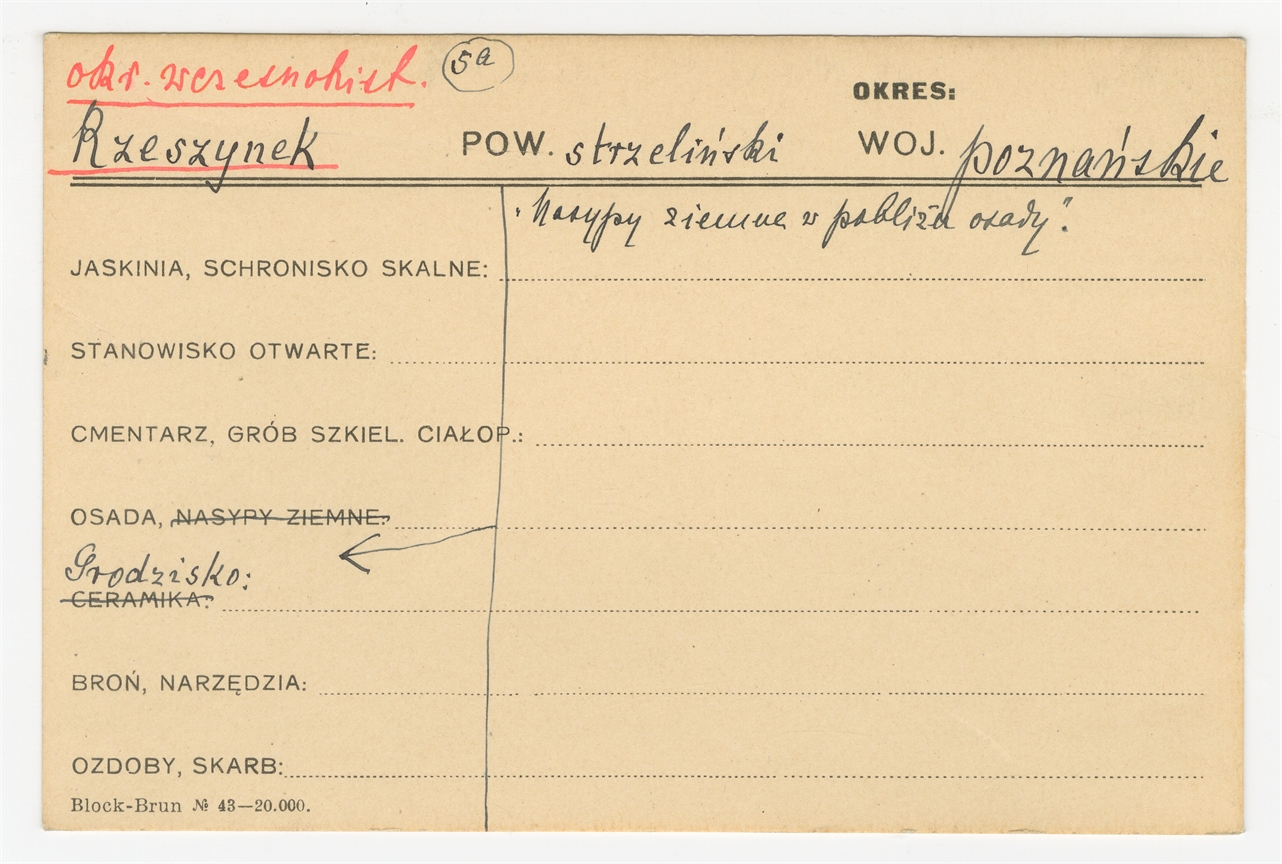 okr. wczesnohist. 5a
OKRES:
Rzeszynek POW. strzeliński WOJ. poznańskie
"Nasypy ziemne w pobliżu osady".
JASKINIA, SCHRONISKO SKALNE:
STANOWISKO OTWARTE:
CMENTARZ, GRÓB SZKIEL. CIAŁOP.:
OSADA, NASYPY ZIEMNE:
Grodzisko:
CERAMIKA:
BROŃ, NARZĘDZIA:
OZDOBY, SKARB:
Block-Brun № 43—20.000.